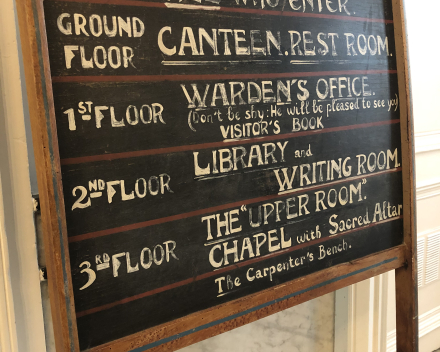 WHO ENTER.
GROUND FLOOR CANTEEN. REST ROOM.
1ST FLOOR WARDEN'S OFFICE.
(Don't be shy: He will be pleased to see you)
VISITOR'S BOOK
2ND FLOOR LIBRARY and
WRITING ROOM.
3RD FLOOR THE "UPPER ROOM".
CHAPEL with Sacred Altar
The Carpenter's Bench.